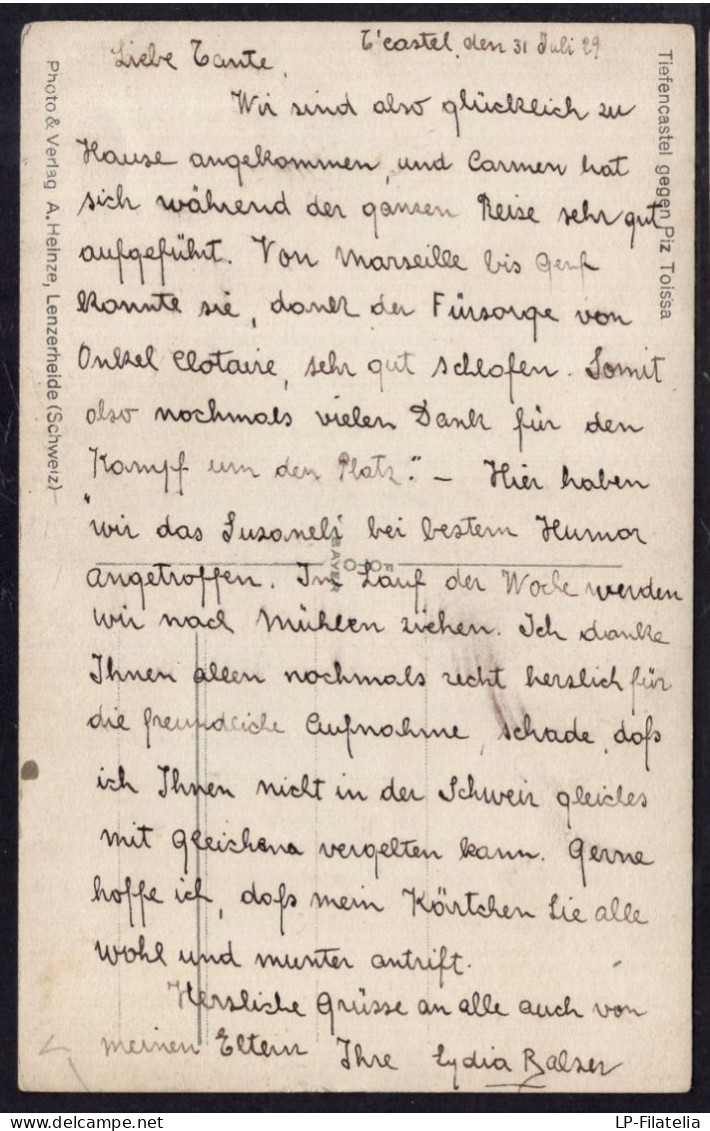 T'castel, den 31 Juli 29
Liebe Tante,
Wir sind also glücklich zu
Hause angekommen, und Carmen hat
sich während der ganzen Reise sehr gut
aufgeführt. Von Marseille bis Genf
konnte sie, dank der Fürsorge von
Onkel Clotaire, sehr gut schlafen. Somit
also nochmals vielen Dank für den
"Kampf um den Platz." – Hier haben
wir das Susaneli bei bestem Humor
angetroffen. Im Lauf der Woche werden
wir nach Mühlen ziehen. Ich danke
Ihnen allen nochmals recht herzlich für
die freundliche Aufnahme, schade, daß
ich Ihnen nicht in der Schweiz gleiches
mit gleichem vergelten kann. Gerne
hoffe ich, daß mein Kärtchen Sie alle
wohl und munter antrift.
Herzliche Grüsse an alle auch von
meinen Eltern Ihre Lydia Balzer
Tiefencastel gegen Piz Toissa
Photo & Verlag A. Heinze, Lenzerheide (Schweiz)
FOTO
BAYER
LP-Filatelia